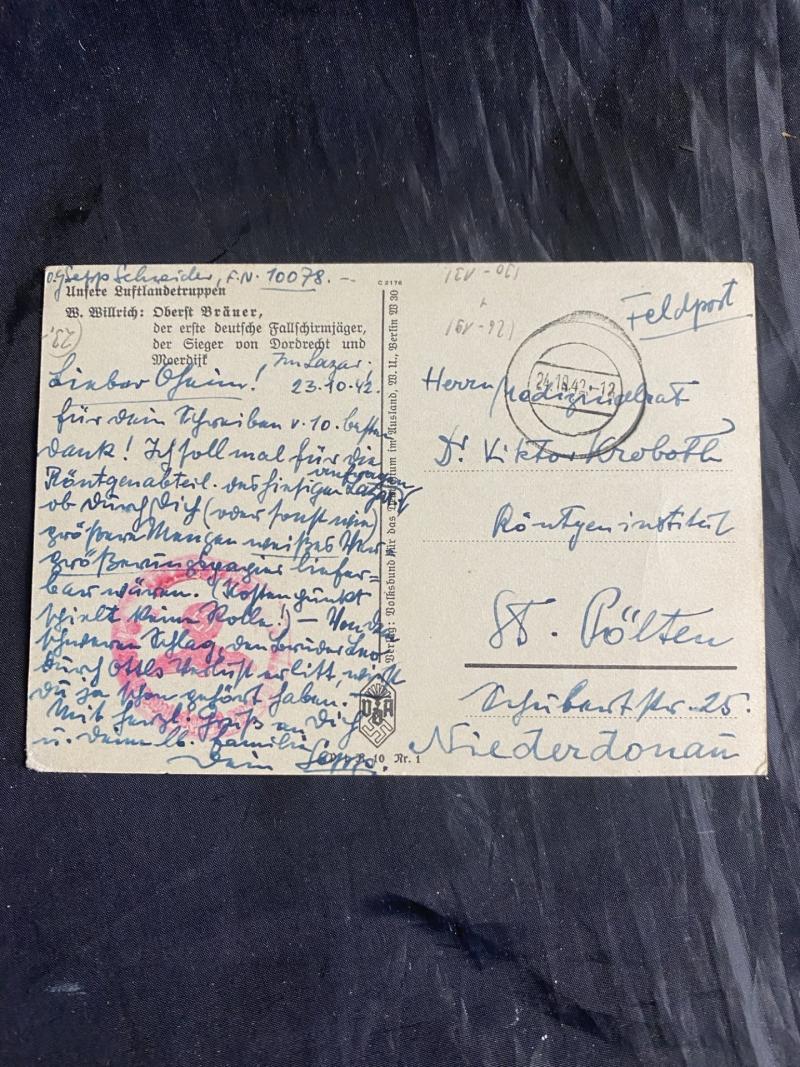 O.G. Sepp Schneider, F.N. 10078.–
Unsere Luftlandetruppen
W. Willrich: Oberst Bräuer,
der erste deutsche Fallschirmjäger,
der Sieger von Dordrecht und
Moerdijk
Im Lazar.
23.10.42.
Lieber Oheim!
für dein Schreiben v. 10. besten
Dank! Ich soll mal für die
Röntgenabteil. des hiesigen Lazar.
anfragen
ob durch Dich (oder sonst wie)
größere Mengen weißes Ver-
größerungspapier liefer-
bar wären. (Kostenpunkt
spielt keine Rolle!) – Von dem
schweren Schlag, den Bruder Leo
durch Ottls Verlust erlitt, wirst
Du ja schon gehört haben.
Mit herzl. Gruß an Dich
u. deine lb. Familie
Dein Sepp.
C 2176
Verlag: Volksbund für das Deutschtum im Ausland, W. U., Berlin W 30
VDA
Nr. 1
Feldpost
24.10.42.-12
Herrn Medizinalrat
Dr. Viktor Kroboth
Röntgeninstitut
St. Pölten
Schubertstr. 25.
Niederdonau